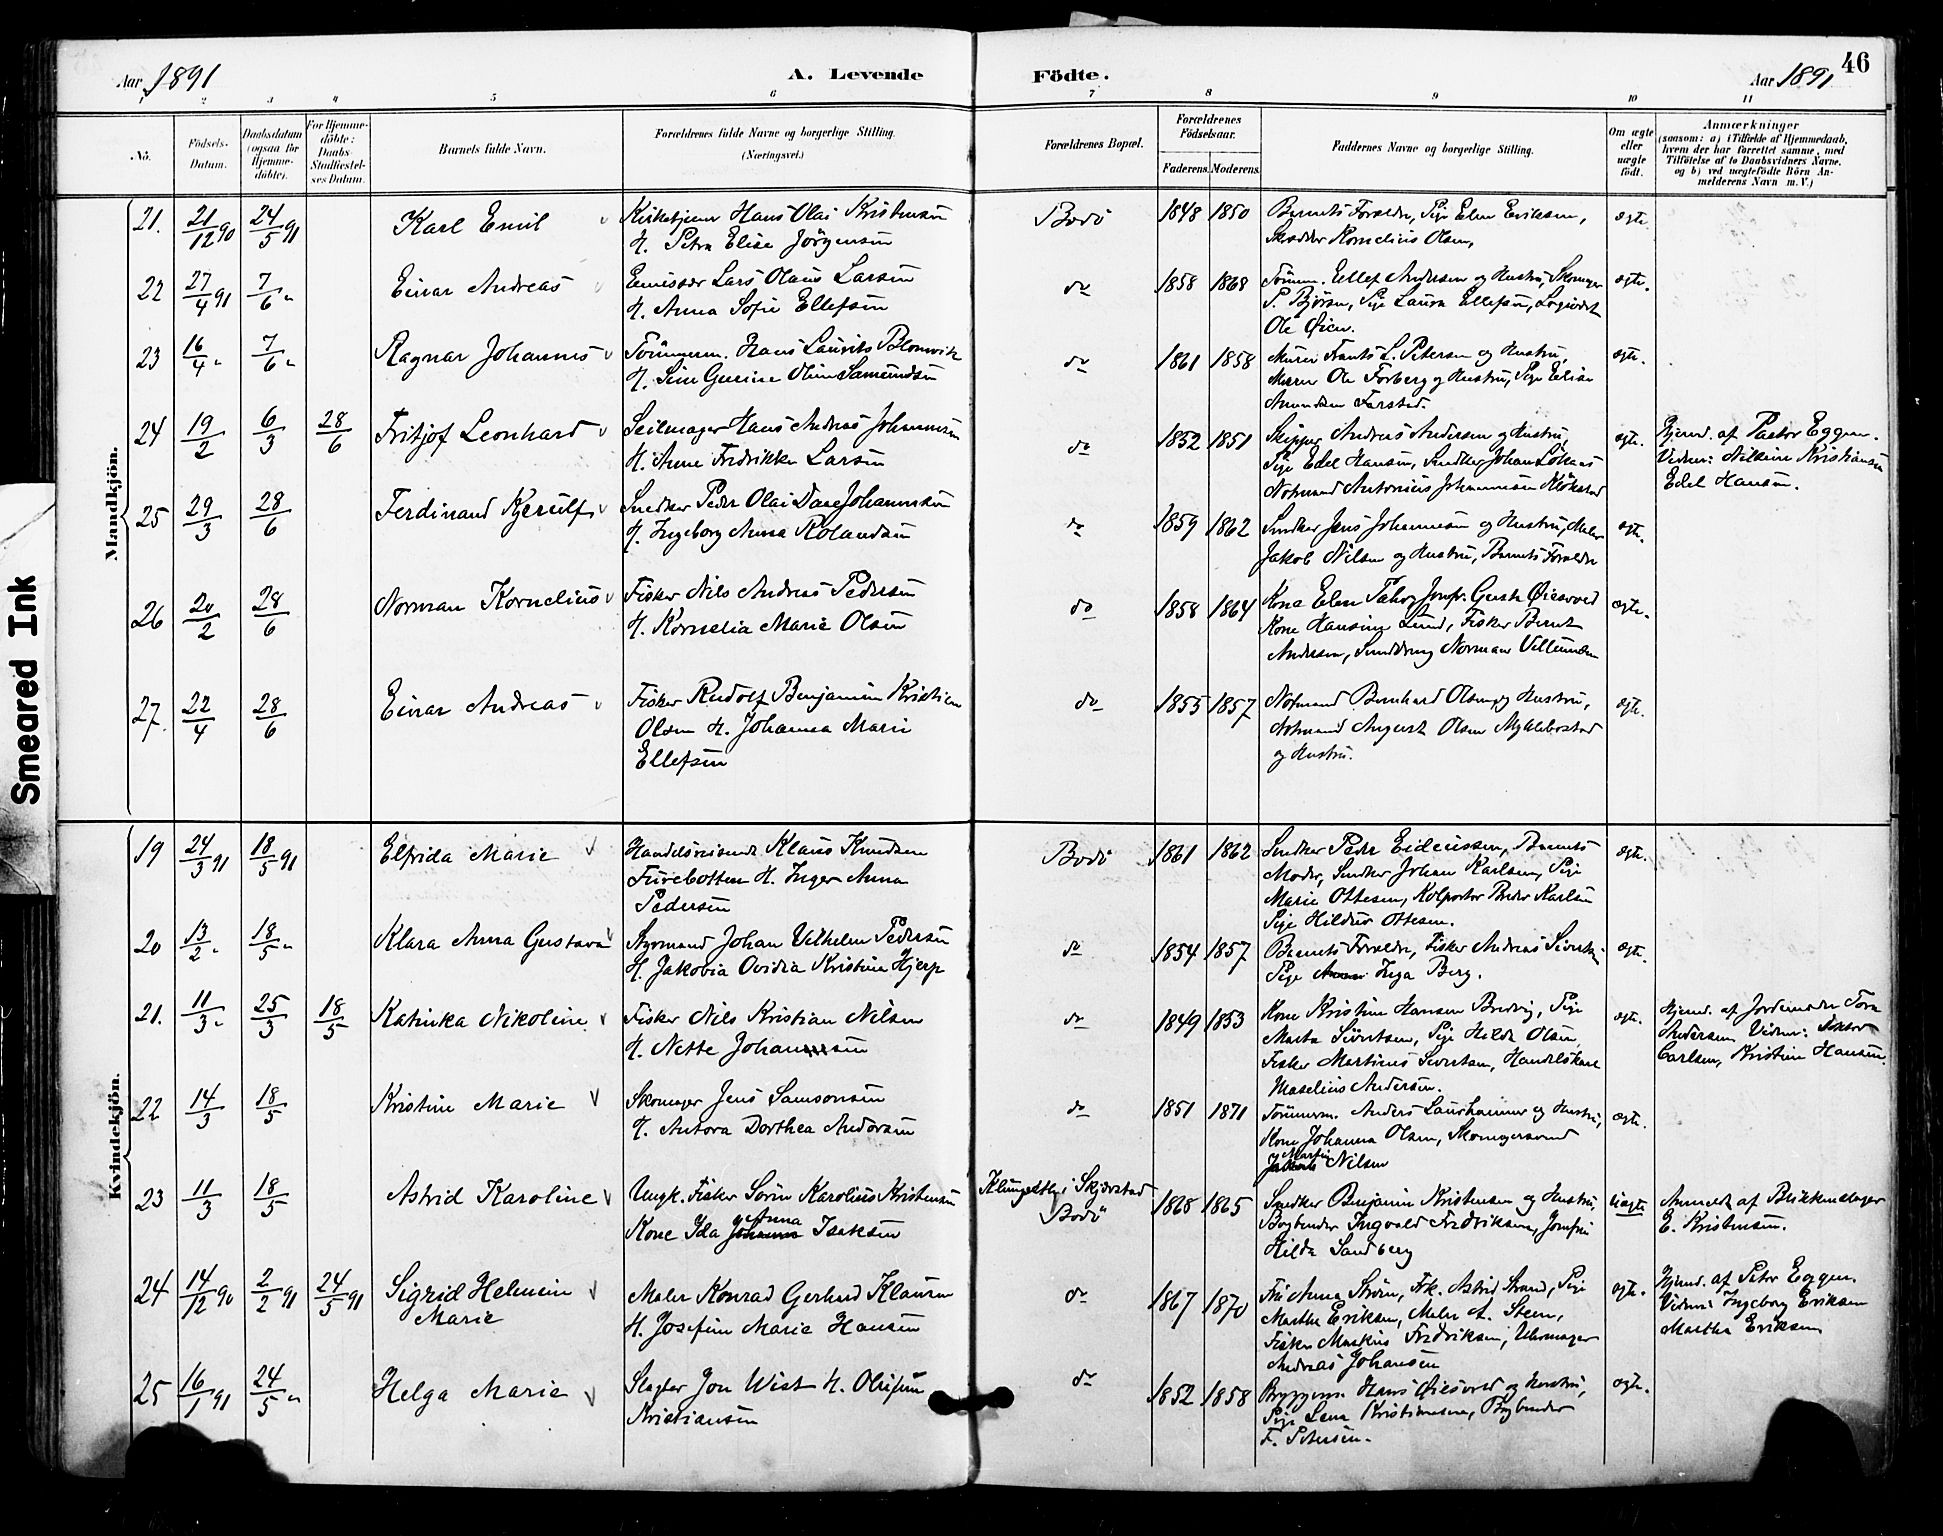 46
Aar 1891
A. Levende
Födte.
Aar 1891
1 2 3 4 5 6 7 8 9 10 11
No.
Födsels-Datum.
Daabsdatum (ogsaa for Hjemme-döbte).
For Hjemme-döbte: Daabs-Stadfæstel-ses Datum.
Barnets fulde Navn.
Forældrenes fulde Navne og borgerlige Stilling.
(Næringsvei.)
Forældrenes Bopæl.
Forældrenes Födselsaar.
Faderens. Moderens.
Faddernes Navne og borgerlige Stilling.
Om ægte eller uægte födt.
Anmærkninger
(saasom: a) i Tilfælde af Hjemmedaab, hvem der har forrettet samme, med Tilföielse af to Daabsvidners Navne, og b) ved uægtefödte Börn An-melderens Navn m. V.)
Mandkjön.
21. 21/12 90 24/5 91 Karl Emil Kirketjener Hans Olai Kristensen Bodö 1848 1850 Barnets Forældre, Pige Elen Eriksen, ægte
H. Petra Elise Jörgensen Skrædder Kornelius Olsen,
22 27/4 91 7/6 " Einar Andreas Emissær Lars Olaus Larsen do 1858 1868 Tömm. Ellef Andersen og Hustru, Skomager ægte.
H. Anna Sofie Ellefsen P. Björsen, Pige Laura Ellefsen,
Ole Öien.
23 16/4 " 7/6 " Ragnar Johannes Tömmerm. Hans Laurits Blomvik do 1861 1858 Murer Frants L. Petersen og Hustru, ægte.
H. Sine Gurine Oline Samundsen Murer Ole Forberg og Hustru, Pige Elise
Amundsen Farstad.
24 19/2 6/3 28/6 Fritjof Leonhard Seilmager Hans Andreas Johannesen do 1852 1851 Skipper Andreas Andersen og Hustru, ægte. Hjemd. af Pastor Eggen.
H. Anne Fredrikke Larsen Pige Edel Hansen, Snedker Johan Löknes Vidner: Nilsine Kristiansen
Notmand Antonius Johannesen Klökstad Edel Hansen.
25 29/3 28/6 Ferdinand Kjerulf Snedker Peder Olai Dase Johannesen do 1859 1862 Snedker Jens Johannesen og Hustru, Maler ægte.
H. Ingeborg Anna Rolandsen Jakob Nilsen og Hustru, Barnets Forældre
26 20/2 28/6 Norman Kornelius Fisker Nils Andreas Pedersen do 1858 1864 Kone Elen Jomfr. Gusta Öiesvold ægte.
H. Kornelia Marie Olsen Kone Hansine Lund, Fisker Bernt
Andersen, Norman Villumsen
27. 22/4 28/6 Einar Andreas Fisker Rudolf Benjamin Kristian do 1855 1857 Notmand Bernhard Olsen og Hustru, ægte.
Olsen H. Johanna Marie Notmand August Olsen Myklebostad
Ellefsen og Hustru.
Kvindekjön.
19 24/3 91 18/5 91 Elfrida Marie Handelsreisende Klaus Knudsen Bodö 1861 1862 Snedker Peder Eideussen, Barnets ægte.
Furebotten H. Inger Anna Moder, Snedker Johan Karlsen, Pige
Pedersen Marie Ottesen, Kolportör Peder Karlsen
Pige Hildur Ottesen.
20 13/2 " 18/5 " Klara Anna Gustava Styrmand Johan Vilhelm Pedersen do 1854 1857 Barnets Forældre, Fisker Andreas Sivertsen ægte.
H. Jakobia Ovidia Kristine Hjerp Pige Inga Berg.
21. 11/3 " 25/3 18/5 Katinka Nikoline Fisker Nils Kristian Nilsen do 1849 1853 Kone Kristine Hansen Bredvig, Pige ægte. Hjemd. af Jordemoder Tora
H. Nette Johansen Marta Sivertsen, Pige Hilda Olsen, Andersen Vidner:
Fisker Martinus Sivertsen, Handelskarl Carlsen, Kristine Hansen.
Maselius Andersen.
22 14/3 18/5 Kristine Marie Skomager Jens Samsonsen do 1851 1871 Tömmerm. Anders Laushammer og Hustru, ægte.
H. Antora Dorthea Andorsen Kone Johanna Olsen, Skomagersvend
Martin Nilsen
23 11/3 18/5 Astrid Karoline Ungk. Fisker Sörin Karolius Kristensen Klungset i Skjerstad 1868 1865 Snedker Benjamin Kristensen og Hustru, Uægte Anmeldt af Blikkenslager
Kone Ida Anna Isaksen Bodö Bogbinder Ingvald Fredriksen, Jomfru E. Kristensen.
Hilda Sandberg
24 14/12 90 2/2 91 24/5 91 Sigrid Helmine Maler Konrad Gerhard Klausen do 1867 1870 Fru Anna Ström, Frk. Astrid Strand, Pige ægte. Hjemd. af Pastor Eggen.
Marie H. Josefine Marie Hansen Martha Eriksen, Maler A. Steen, Vidner: Ingeborg Eriksen
Fisker Markus Fredriksen, Uhrmager Martha Eriksen
Andreas Johansen
25 16/1 91 24/5 " Helga Marie Slagter Jon Wist H. Olufine do 1852 1858 Hans Öiesvold og Hustru, ægte.
Kristiansen Pige Lena Kristiansen, Bogbinder
F. Petersen.
Smeared Ink